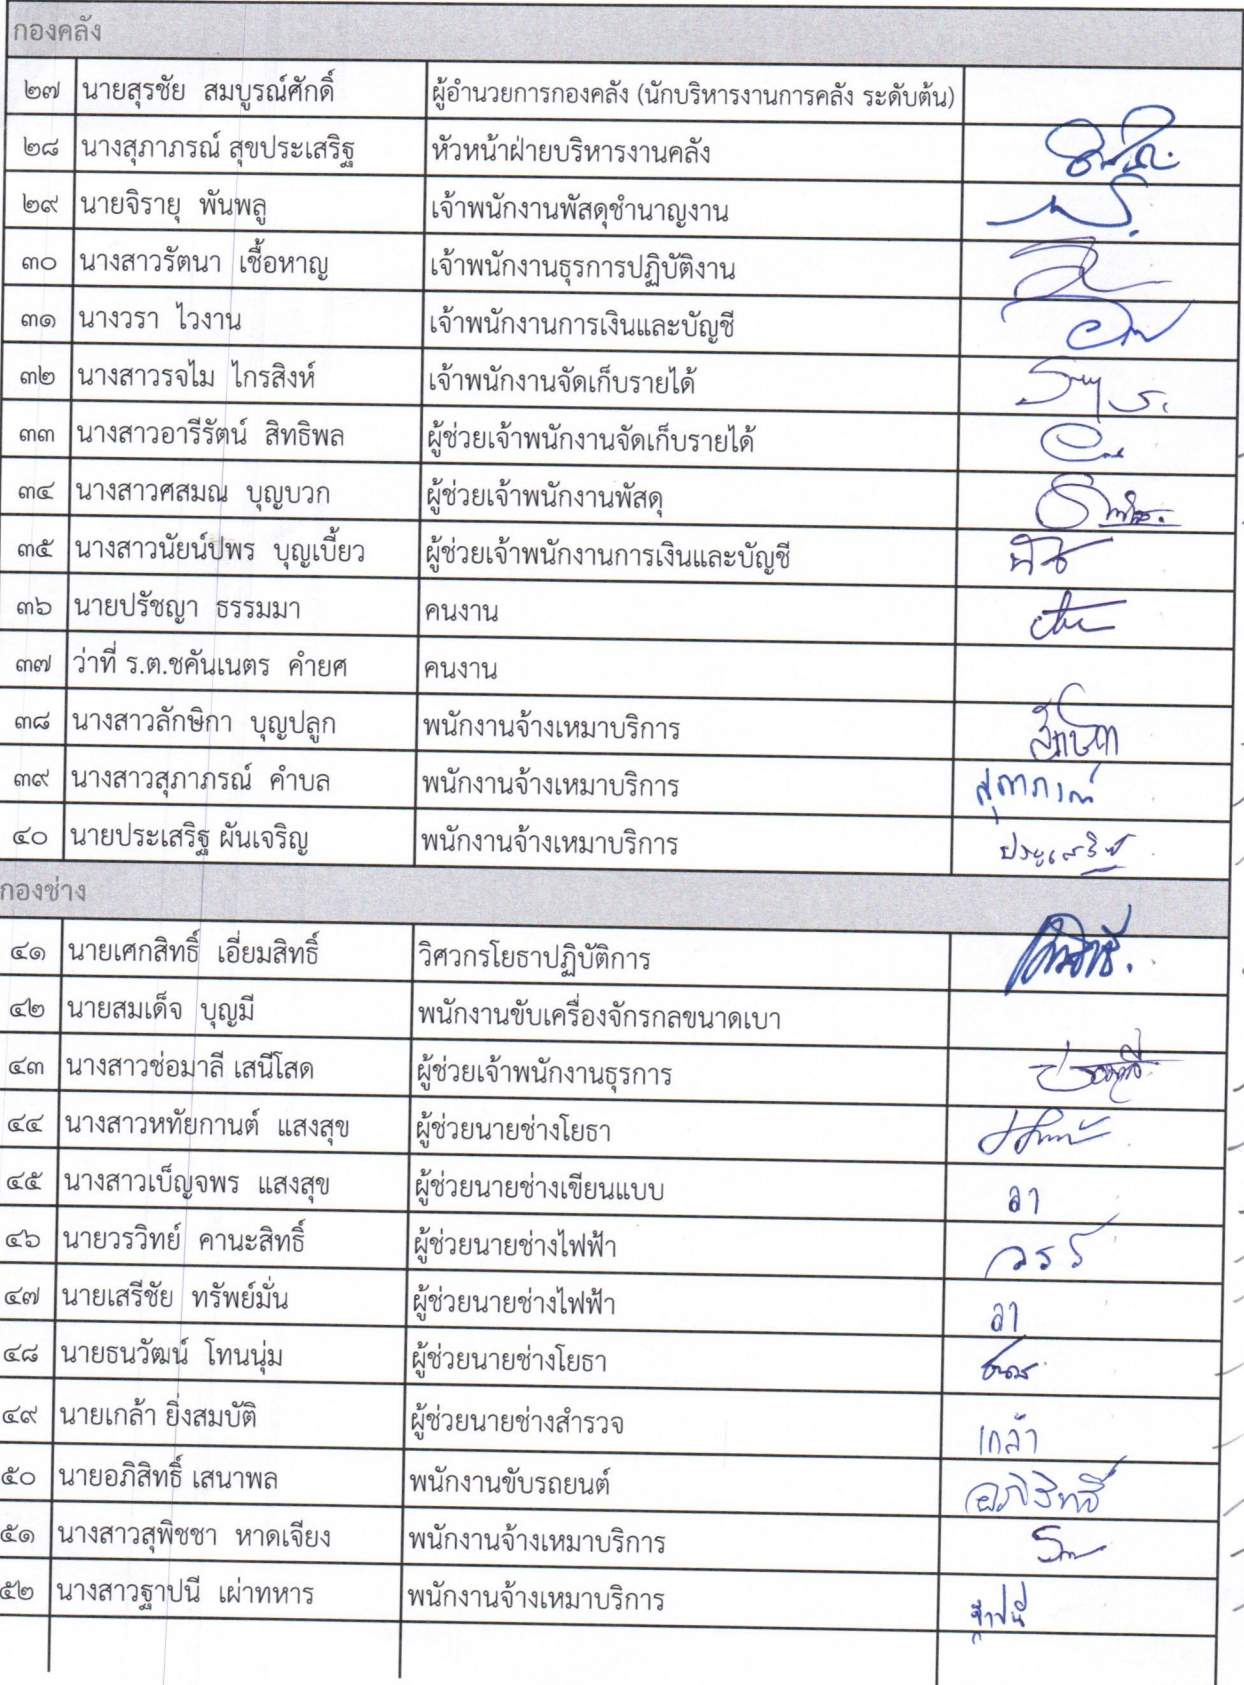 กองคลัง
๒๗ นายสุรชัย สมบูรณ์ศักดิ์ ผู้อำนวยการกองคลัง (นักบริหารงานการคลัง ระดับต้น)
๒๘ นางสุภาภรณ์ สุขประเสริฐ หัวหน้าฝ่ายบริหารงานคลัง
๒๙ นายจิรายุ พันพลู เจ้าพนักงานพัสดุชำนาญงาน
๓๐ นางสาวรัตนา เชื้อหาญ เจ้าพนักงานธุรการปฏิบัติงาน
๓๑ นางวรา ไวงาน เจ้าพนักงานการเงินและบัญชี
๓๒ นางสาวรจไม ไกรสิงห์ เจ้าพนักงานจัดเก็บรายได้
๓๓ นางสาวอารีรัตน์ สิทธิพล ผู้ช่วยเจ้าพนักงานจัดเก็บรายได้
๓๔ นางสาวศสมณ บุญบวก ผู้ช่วยเจ้าพนักงานพัสดุ
๓๕ นางสาวนัยน์ปพร บุญเบี้ยว ผู้ช่วยเจ้าพนักงานการเงินและบัญชี
๓๖ นายปรัชญา ธรรมมา คนงาน
๓๗ ว่าที่ ร.ต.ชคันเนตร คำยศ คนงาน
๓๘ นางสาวลักษิกา บุญปลูก พนักงานจ้างเหมาบริการ
๓๙ นางสาวสุภาภรณ์ คำบล พนักงานจ้างเหมาบริการ สุภาภรณ์
๔๐ นายประเสริฐ ผันเจริญ พนักงานจ้างเหมาบริการ ประเสริฐ
กองช่าง
๔๑ นายเศกสิทธิ์ เอี่ยมสิทธิ์ วิศวกรโยธาปฏิบัติการ
๔๒ นายสมเด็จ บุญมี พนักงานขับเครื่องจักรกลขนาดเบา
๔๓ นางสาวช่อมาลี เสนีโสด ผู้ช่วยเจ้าพนักงานธุรการ
๔๔ นางสาวหทัยกานต์ แสงสุข ผู้ช่วยนายช่างโยธา
๔๕ นางสาวเบ็ญจพร แสงสุข ผู้ช่วยนายช่างเขียนแบบ ลา
๔๖ นายวรวิทย์ คานะสิทธิ์ ผู้ช่วยนายช่างไฟฟ้า
๔๗ นายเสรีชัย ทรัพย์มั่น ผู้ช่วยนายช่างไฟฟ้า ลา
๔๘ นายธนวัฒน์ โทนนุ่ม ผู้ช่วยนายช่างโยธา
๔๙ นายเกล้า ยิ่งสมบัติ ผู้ช่วยนายช่างสำรวจ เกล้า
๕๐ นายอภิสิทธิ์ เสนาพล พนักงานขับรถยนต์ อภิสิทธิ์
๕๑ นางสาวสุพิชชา หาดเจียง พนักงานจ้างเหมาบริการ
๕๒ นางสาวฐาปนี เผ่าทหาร พนักงานจ้างเหมาบริการ ฐาปนี